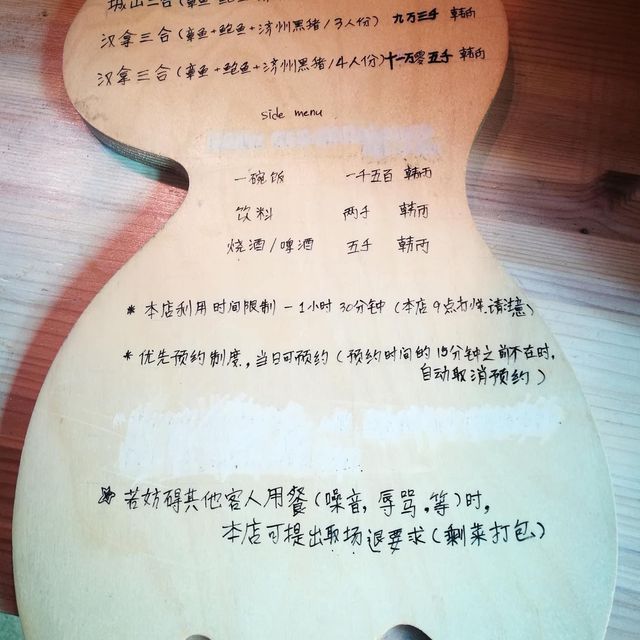 城山三合(章鱼+鲍鱼
汉拿三合(章鱼+鲍鱼+济州黑猪/3人份) 九万三千 韩币
汉拿三合(章鱼+鲍鱼+济州黑猪/4人份) 十一万零五千 韩币
side menu
一碗饭 一千五百 韩币
饮料 两千 韩币
烧酒/啤酒 五千 韩币
* 本店利用时间限制 - 1小时 30分钟 (本店 9点打烊.请注意)
* 优先预约制度, 当日可预约 (预约时间的 15分钟之前不在时,
自动取消预约)
* 若妨碍其他客人用餐 (噪音, 辱骂, 等) 时,
本店可提出取场退要求 (剩菜打包)